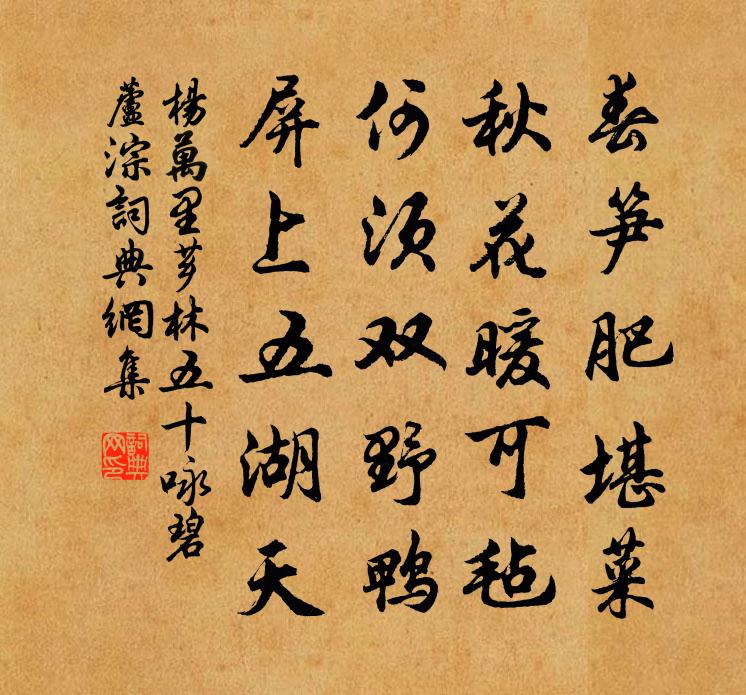 春笋肥堪菜
秋花暖可毡
何须双野鸭
屏上五湖天
楊萬里芗林五十咏碧
蘆淙詞典網集
詞典
网印